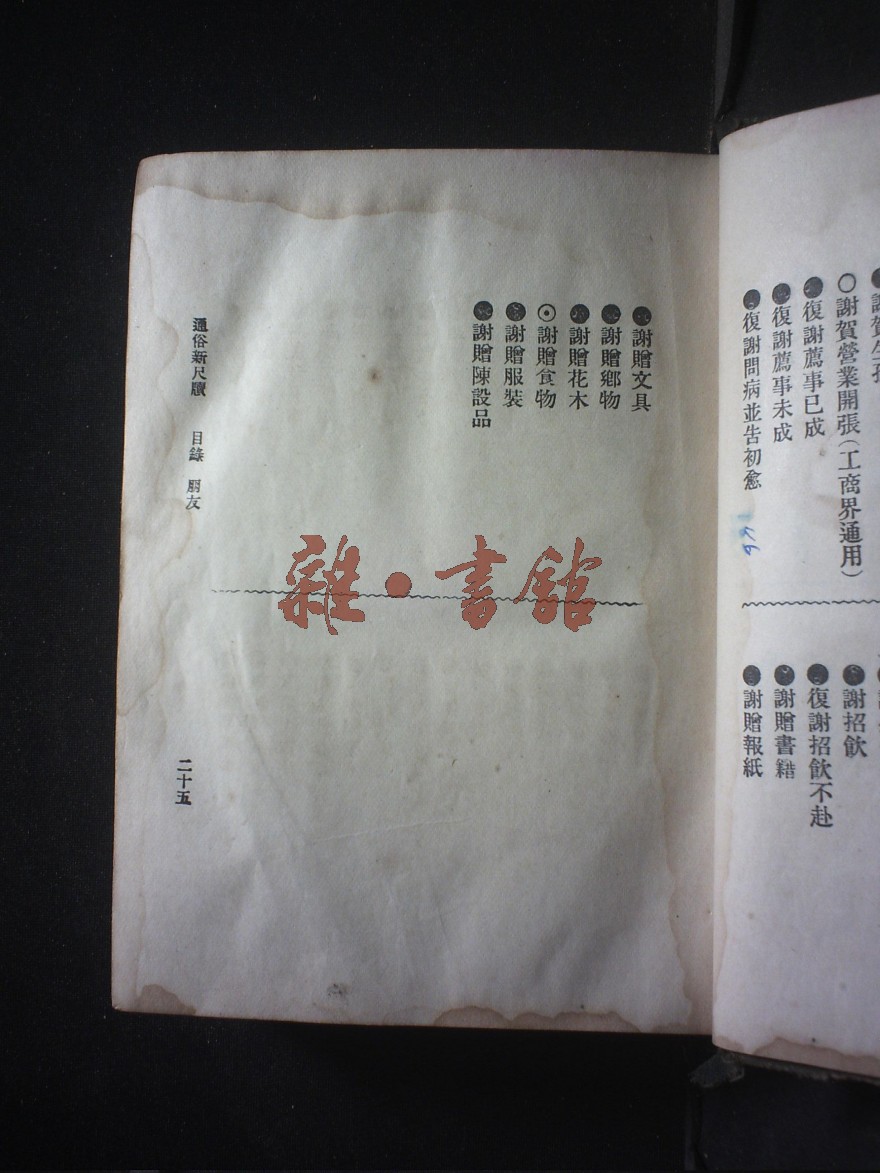 謝賀生孫
○謝賀營業開張(工商界通用)
●復謝薦事已成
●復謝薦事未成
●復謝問病並告初愈
●謝招飲
●復謝招飲不赴
●謝贈書籍
●謝贈報紙
●謝贈文具
●謝贈鄉物
●謝贈花木
⊙謝贈食物
●謝贈服裝
●謝贈陳設品
通俗新尺牘 目錄 朋友
二十五
雜·書館